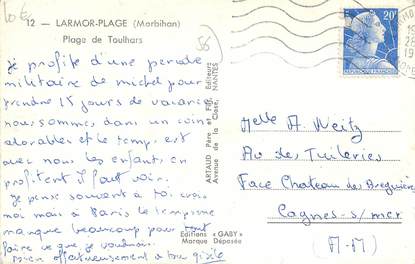 10 E
12 — LARMOR-PLAGE (Morbihan)
Plage de Toulhars
56
Je profite d'une periode
militaire de michel pour
prendre 15 jours de vacances
nous sommes dans un coin
adorables et le temps est
avec nous les enfants en
profitent il faut voir.
Je pense souvent à toi
moi mais à Paris le temps me
manque beaucoup pour
faire ce que je voudrais.
bien affectueusement à toi gisèle
ARTAUD Père et Fils, Editeurs
Avenue de la Close, NANTES
Editions "GABY"
Marque Déposée
20F
POSTES
REPUBLIQUE FRANCAISE
Melle A. Weitz
Av des Tuileries
Face Chateau des
Cagnes-s/mer
(A-M)